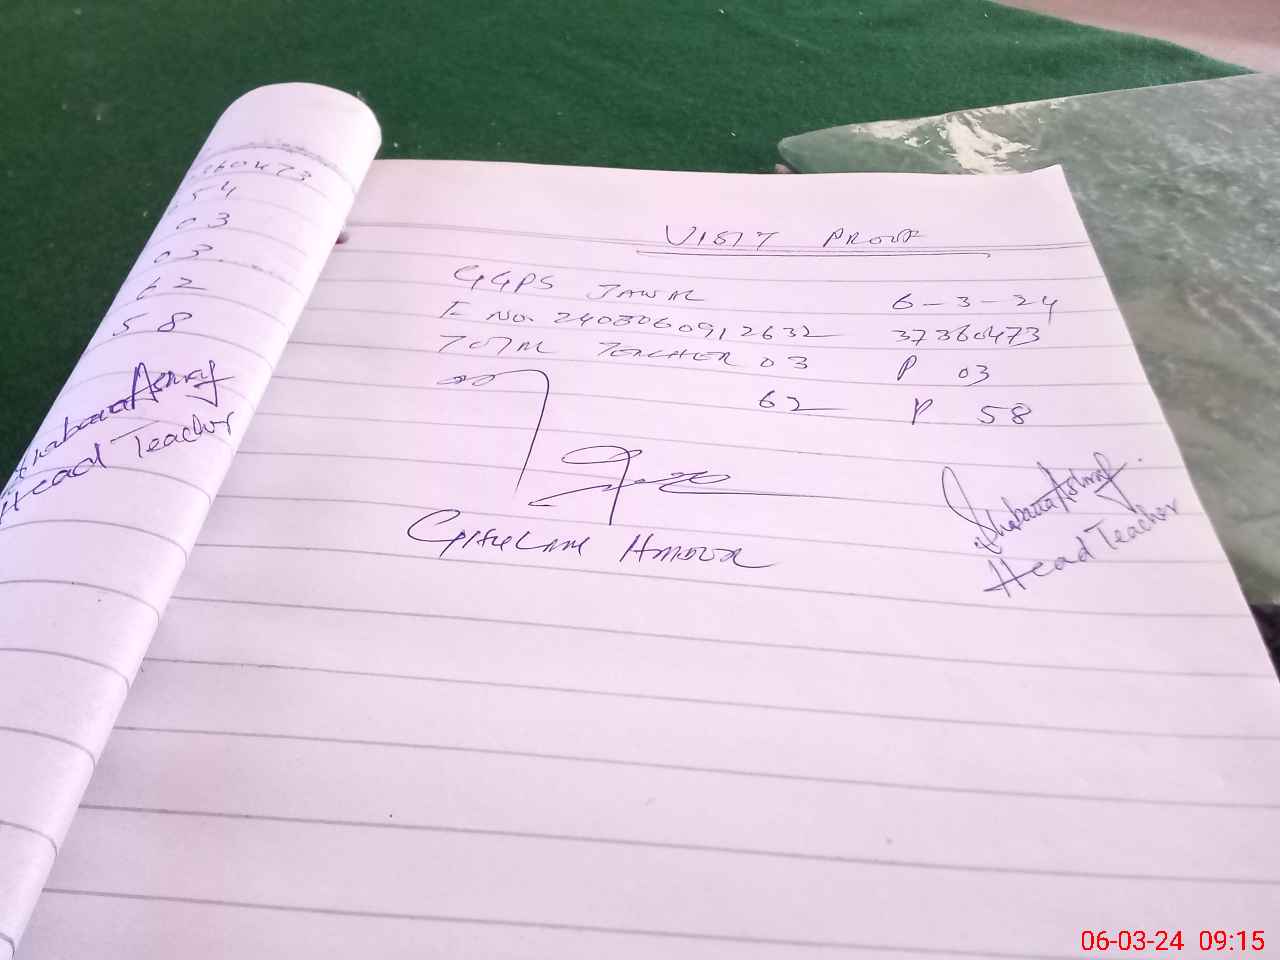 260473
54
03
03
62
58
Shabana Ashraf
Head Teacher
VISIT PROOF
GGPS JAWAL 6-3-24
E NO. 2408060912632 37360473
TOTAL TEACHER 03 P 03
62 P 58
Shabana Ashraf
Head Teacher
06-03-24 09:15